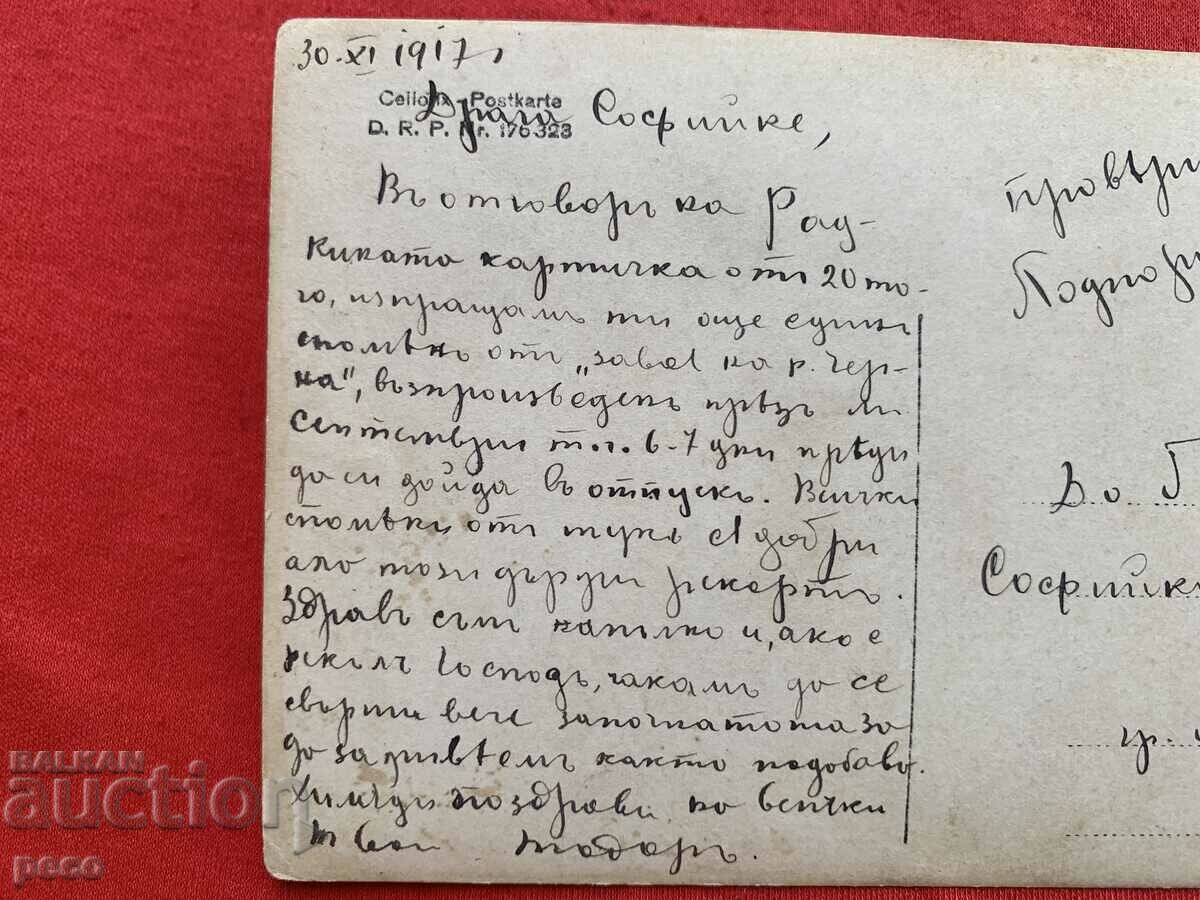 30.XI 1917
Cellofix Postkarte
D. R. P. Nr. 176323
Драга Софийке,
Въ отговоръ на Рад-
кината картичка отъ 20 то-
го, изпращамъ ти още единъ
споменъ отъ „завоя на р. Чер-
на", възпроизведенъ презъ м.
Септемврий т. г. 6-7 дни преди
да си дойда въ отпускъ. Всички
спомени от тукъ са добри
ала този държи рекорть.
Здравъ съм напълно и, ако е
рекълъ Господъ, чакамъ да се
свърши вече започнатото за
да заживеемъ както подобава.
Хиляди поздрави на всички
Твой Тодоръ.
провери
Подпор
До Г
Софийк
гр.
BALKAN
auction
peco